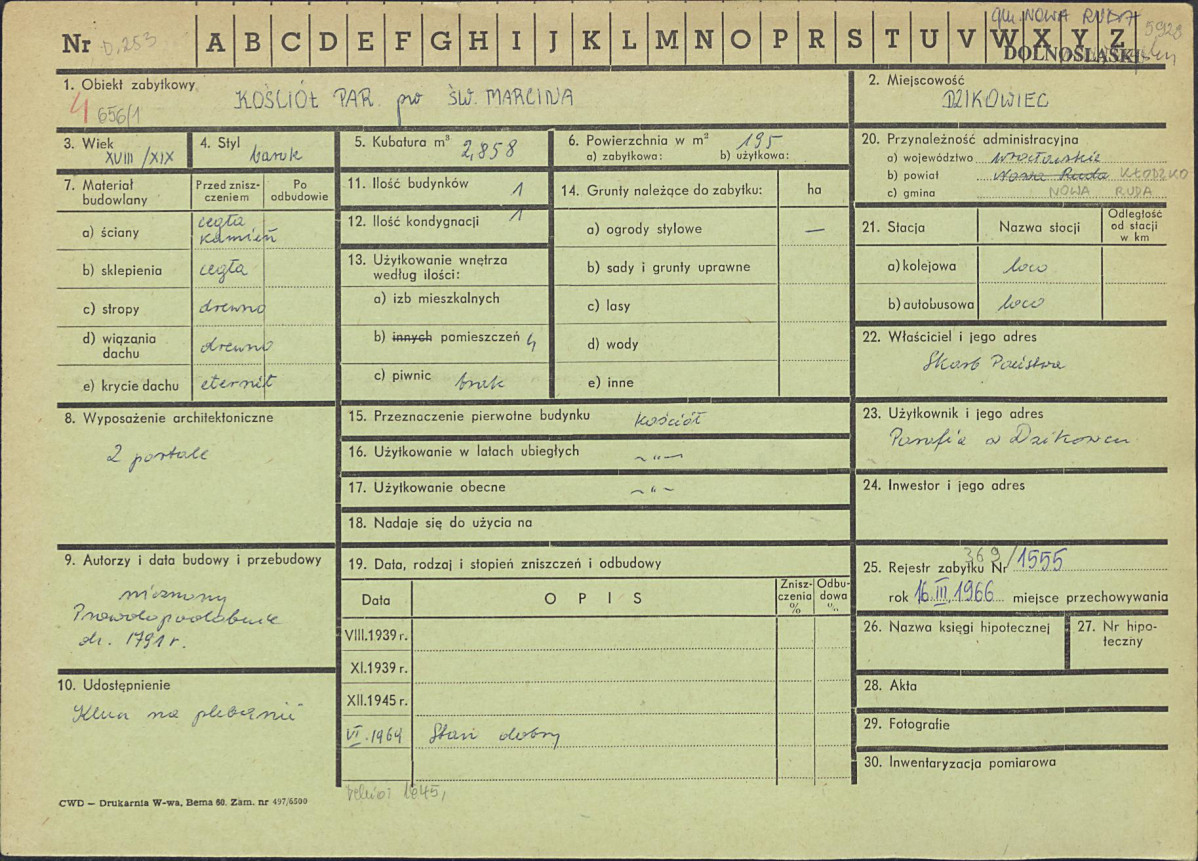 gm. NOWA RUDA
5928
Nr D.253 A B C D E F G H I J K L M N O P R S T U V W X Y Z
DOLNOŚLĄSKI
1. Obiekt zabytkowy
KOŚCIÓŁ PAR. pw ŚW. MARCINA
4 656/1
2. Miejscowość
DZIKOWIEC
3. Wiek
XVIII/XIX
4. Styl
barok
5. Kubatura m³
2,858
6. Powierzchnia w m² 195
a) zabytkowa: b) użytkowa:
7. Materiał budowlany
Przed znisz-
czeniem
Po
odbudowie
a) ściany
cegła
kamień
b) sklepienia cegła
c) stropy drewno
d) wiązania
dachu drewno
e) krycie dachu eternit
8. Wyposażenie architektoniczne
2 portale
9. Autorzy i data budowy i przebudowy
nieznany
Prawdopodobnie
dr. 1791 r.
10. Udostępnienie
Klucz na plebanii
11. Ilość budynków 1
12. Ilość kondygnacji 1
13. Użytkowanie wnętrza
według ilości:
a) izb mieszkalnych
b) innych pomieszczeń 4
c) piwnic brak
14. Grunty należące do zabytku: ha
a) ogrody stylowe —
b) sady i grunty uprawne
c) lasy
d) wody
e) inne
15. Przeznaczenie pierwotne budynku kościół
16. Użytkowanie w latach ubiegłych —„—
17. Użytkowanie obecne —„—
18. Nadaje się do użycia na
19. Data, rodzaj i stopień zniszczeń i odbudowy
Data
O P I S
Znisz-
czenia
%
Odbu-
dowa
%
VIII.1939 r.
XI.1939 r.
XII.1945 r.
VI.1964 Stan dobry
1845,
20. Przynależność administracyjna
a) województwo wrocławskie
b) powiat Nowa Ruda KŁODZKO
c) gmina NOWA RUDA
21. Stacja
Nazwa stocji
Odległość
od stacji
w km
a) kolejowa loco
b) autobusowa loco
22. Właściciel i jego adres
Skarb Państwa
23. Użytkownik i jego adres
Parafia w Dzikowcu
24. Inwestor i jego adres
25. Rejestr zabytku Nr 369/1555
rok 16.III.1966 miejsce przechowywania
26. Nazwa księgi hipotecznej
27. Nr hipo-
teczny
28. Akta
29. Fotografie
30. Inwentaryzacja pomiarowa
CWD — Drukarnia W-wa, Bema 60. Zam. nr 497/6500